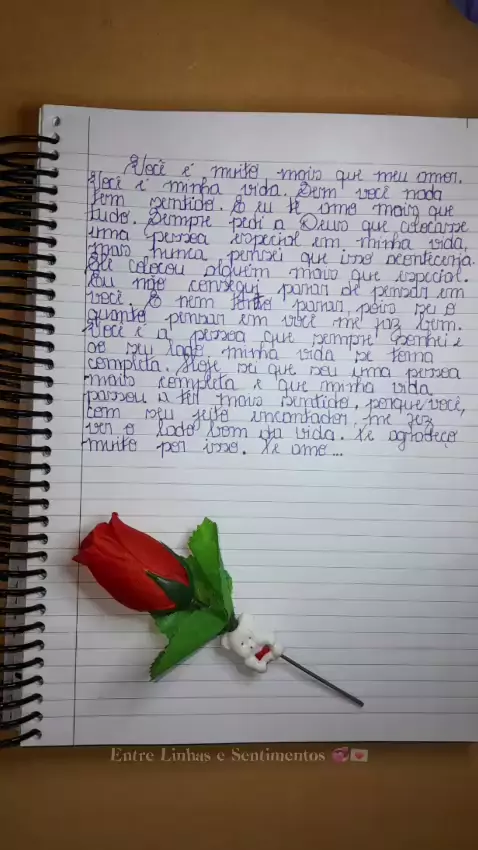 Você é muito mais que meu amor.
Você é minha vida. Sem você nada
tem sentido. E eu te amo mais que
tudo. Sempre pedi a Deus que colocasse
uma pessoa especial em minha vida,
mas nunca pensei que isso aconteceria.
Ele colocou alguém mais que especial.
Eu não consegui parar de pensar em
você. E nem tento parar, pois sei o
quanto pensar em você me faz bem.
Você é a pessoa que sempre sonhei e
ao seu lado, minha vida se torna
completa. Hoje sei que sou uma pessoa
mais completa e que minha vida
passou a ter mais sentido, porque você,
com seu jeito encantador, me fez
ver o lado bom da vida. Te agradeço
muito por isso. Te amo...
Entre Linhas e Sentimentos